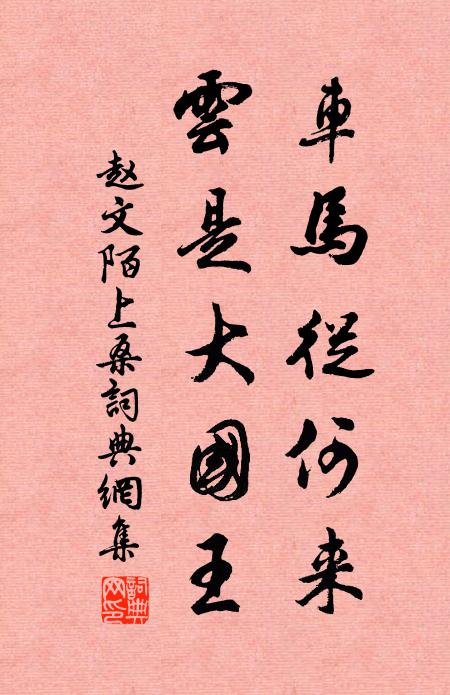 車馬從何来
雲是大國王
赵文陌上桑詞典網集
詞典网印